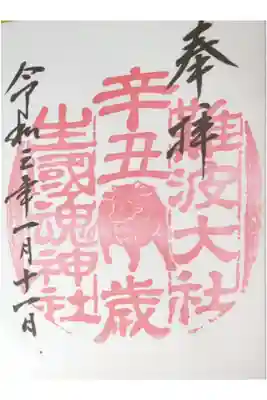 奉拝
難波大社
辛丑歳
生國魂神社
令和三年一月十一日